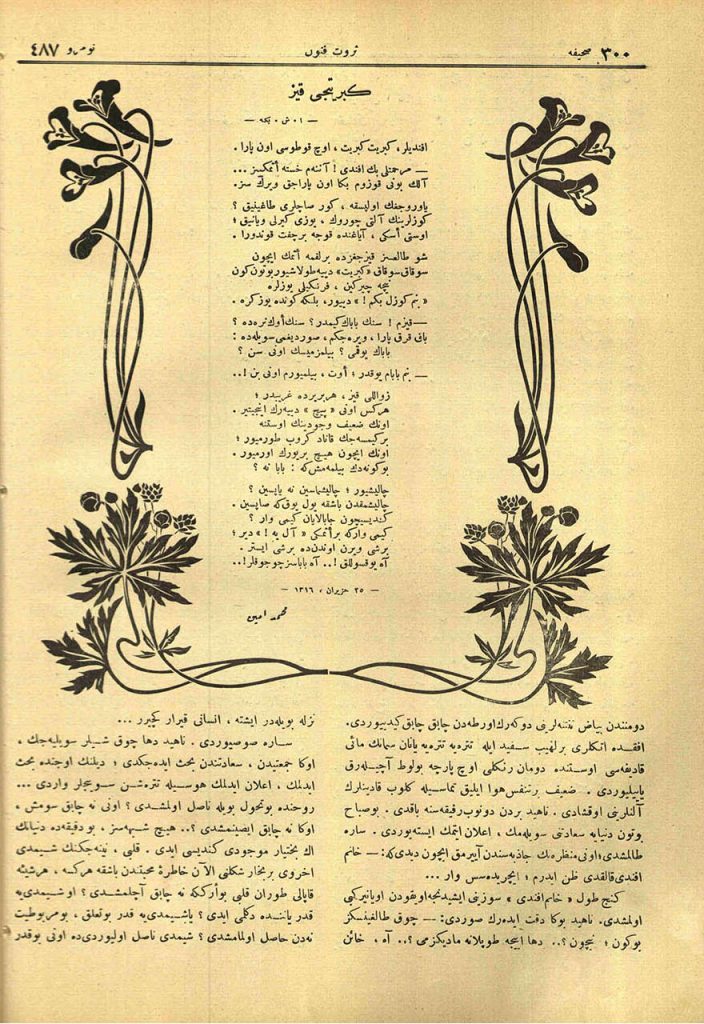 صحیفه ۳۰۰
ثروت فنون
نومرو ٤٨٧
كبریتجی قیز
— ا . ش . بكه —
افندیلر ، كبریت كبریت ، اوچ قوطوسی اون پارا .
— مرحمتلی بك افندی ! آننه‌م خسته أتمكسز ...
آلك بونی قوزوم بكا اون پاراجق ویرك سز .
یاوروجغك اولیسقه ، كور صاچلری طاغینیق ؟
كوزلرینك آلتی چوروك ، یوزی كیرلی ویانیق ؛
اوستی أسكی ، آیاغنده قوجه برچفت قوندورا .
شو طالعسز قیزجغزده برلقمه أتمك ایچون
سوقاق سوقاق «كبریت» دییه طولاشیور بوتون كون
نیجه چیركین ، فرنكیلی یوزلره
« بنم كوزل بكم ! » دییور ، بلكه كونده یوز كره .
— قیزم ! سنك باباك كیمدر ؟ سنك أوك نره‌ده ؟
باق قرق پارا ، ویره‌جكم ، صوردیغمی سویله‌ده :
باباك یوقمی ؟ بیلمزمیسك اونی سن ؟
— بنم بابام یوقدر ؛ أوت ، بیلمیورم اونی بن !..
زواللی قیز ، هر یرده غریبدر ؛
هركس اونی « پیچ » دییه‌رك اینجیتیر .
اونك ضعیف وجودینك اوستنه
بركیمسه‌جك قاناد كروب طورمیور ؛
اونك ایچون هیچ بر یورك اورمیور .
بوكونه‌دك بیلمه‌مش كه : بابا نه ؟
چالیشیور ؛ چالیشماسین نه یاپسین ؟
چالیشمقدن باشقه یول یوق كه صاپسین .
كندیسیچون چابالایان كیمی وار ؟
كیمی واركه برأتمكی « آل یه ! » دیر ؛
برشی ویرن اوندن‌ده برشی ایستر .
آه یوقسوللق !.. آه باباسز چوجوقلر !..
— ۲۵ حزیران ، ۱۳۱٦ —
محمد امین
دومنندن بیاض نفتلرینی دوكه‌رك اورطه‌دن چابق چابق كیدییوردی .
افقده اتكلری برلهیب سفید ایله تتره‌یه تتره‌یه یانان سمانك مائی
قادیفه‌سی اوستنده دومان رنكلی اوچ پارچه بولوط آچیله‌رق
یاییلیوردی . ضعیف برنفس هوا ایلیق تماسیله كلوب قادینلرك
آلنلرینی اوقشادی . ناهید بردن دونوب رفیقه‌سنه باقدی . بوصباح
بوتون دنیایه سعادتنی سویله‌مك ، اعلان ایتمك ایسته‌یوردی . ساره
طالمشدی ؛ اونی منظره‌نك جاذبه‌سندن آییرمق ایچون دیدی كه : — خانم
افندی قالقدی ظن ایدرم ؛ ایچریده‌سس وار ...
كنج طول « خانم افندی » سوزینی ایشیدنجه اویقودن اویانیركبی
اولمشدی . ناهید بوكا دقت ایده‌رك صوردی : — چوق طالغینسكز
بوكون ؛ نیچون ؟.. دها اییجه طوپلانه مادیكزمی ؟.. آه ، خائن
نزله بویله‌در ایشته ، انسانی قیرار كچیرر ...
ساره صوصیوردی . ناهید دها چوق شیلر سویلیه‌جك ،
اوكا جمعتیدن ، سعادتندن بحث ایده‌جكدی ؛ دیلنك اوجنده بحث
ایدلمك ، اعلان ایدلمك هوسیله تتره‌شن سوینجلر واردی ...
روحنده بوتحول بویله ناصل اولمشدی ؟ اونی نه چابق سومش ،
اوكا نه چابق ایصینمشدی ؟.. هیچ شبهه‌سز ، بودقیقه‌ده دنیانك
اك بختیار موجودی كندیسی ایدی . قلبی ،
اخروی بربخار شكلنی آلان خاطرۀ محبتندن باشقه هركسه ، هرشیئه
قاپالی طوران قلبی بوأرككه نه چابق آچلمشدی ؟ اوشیمدی‌یه
قدر یاننده دكلمی ایدی ؟ یاشیمدی‌یه قدر بوتعلق ، بومربوطیت
نه‌دن حاصل اولمامشدی ؟ شیمدی ناصل اولیوردی‌ده اونی بوقدر